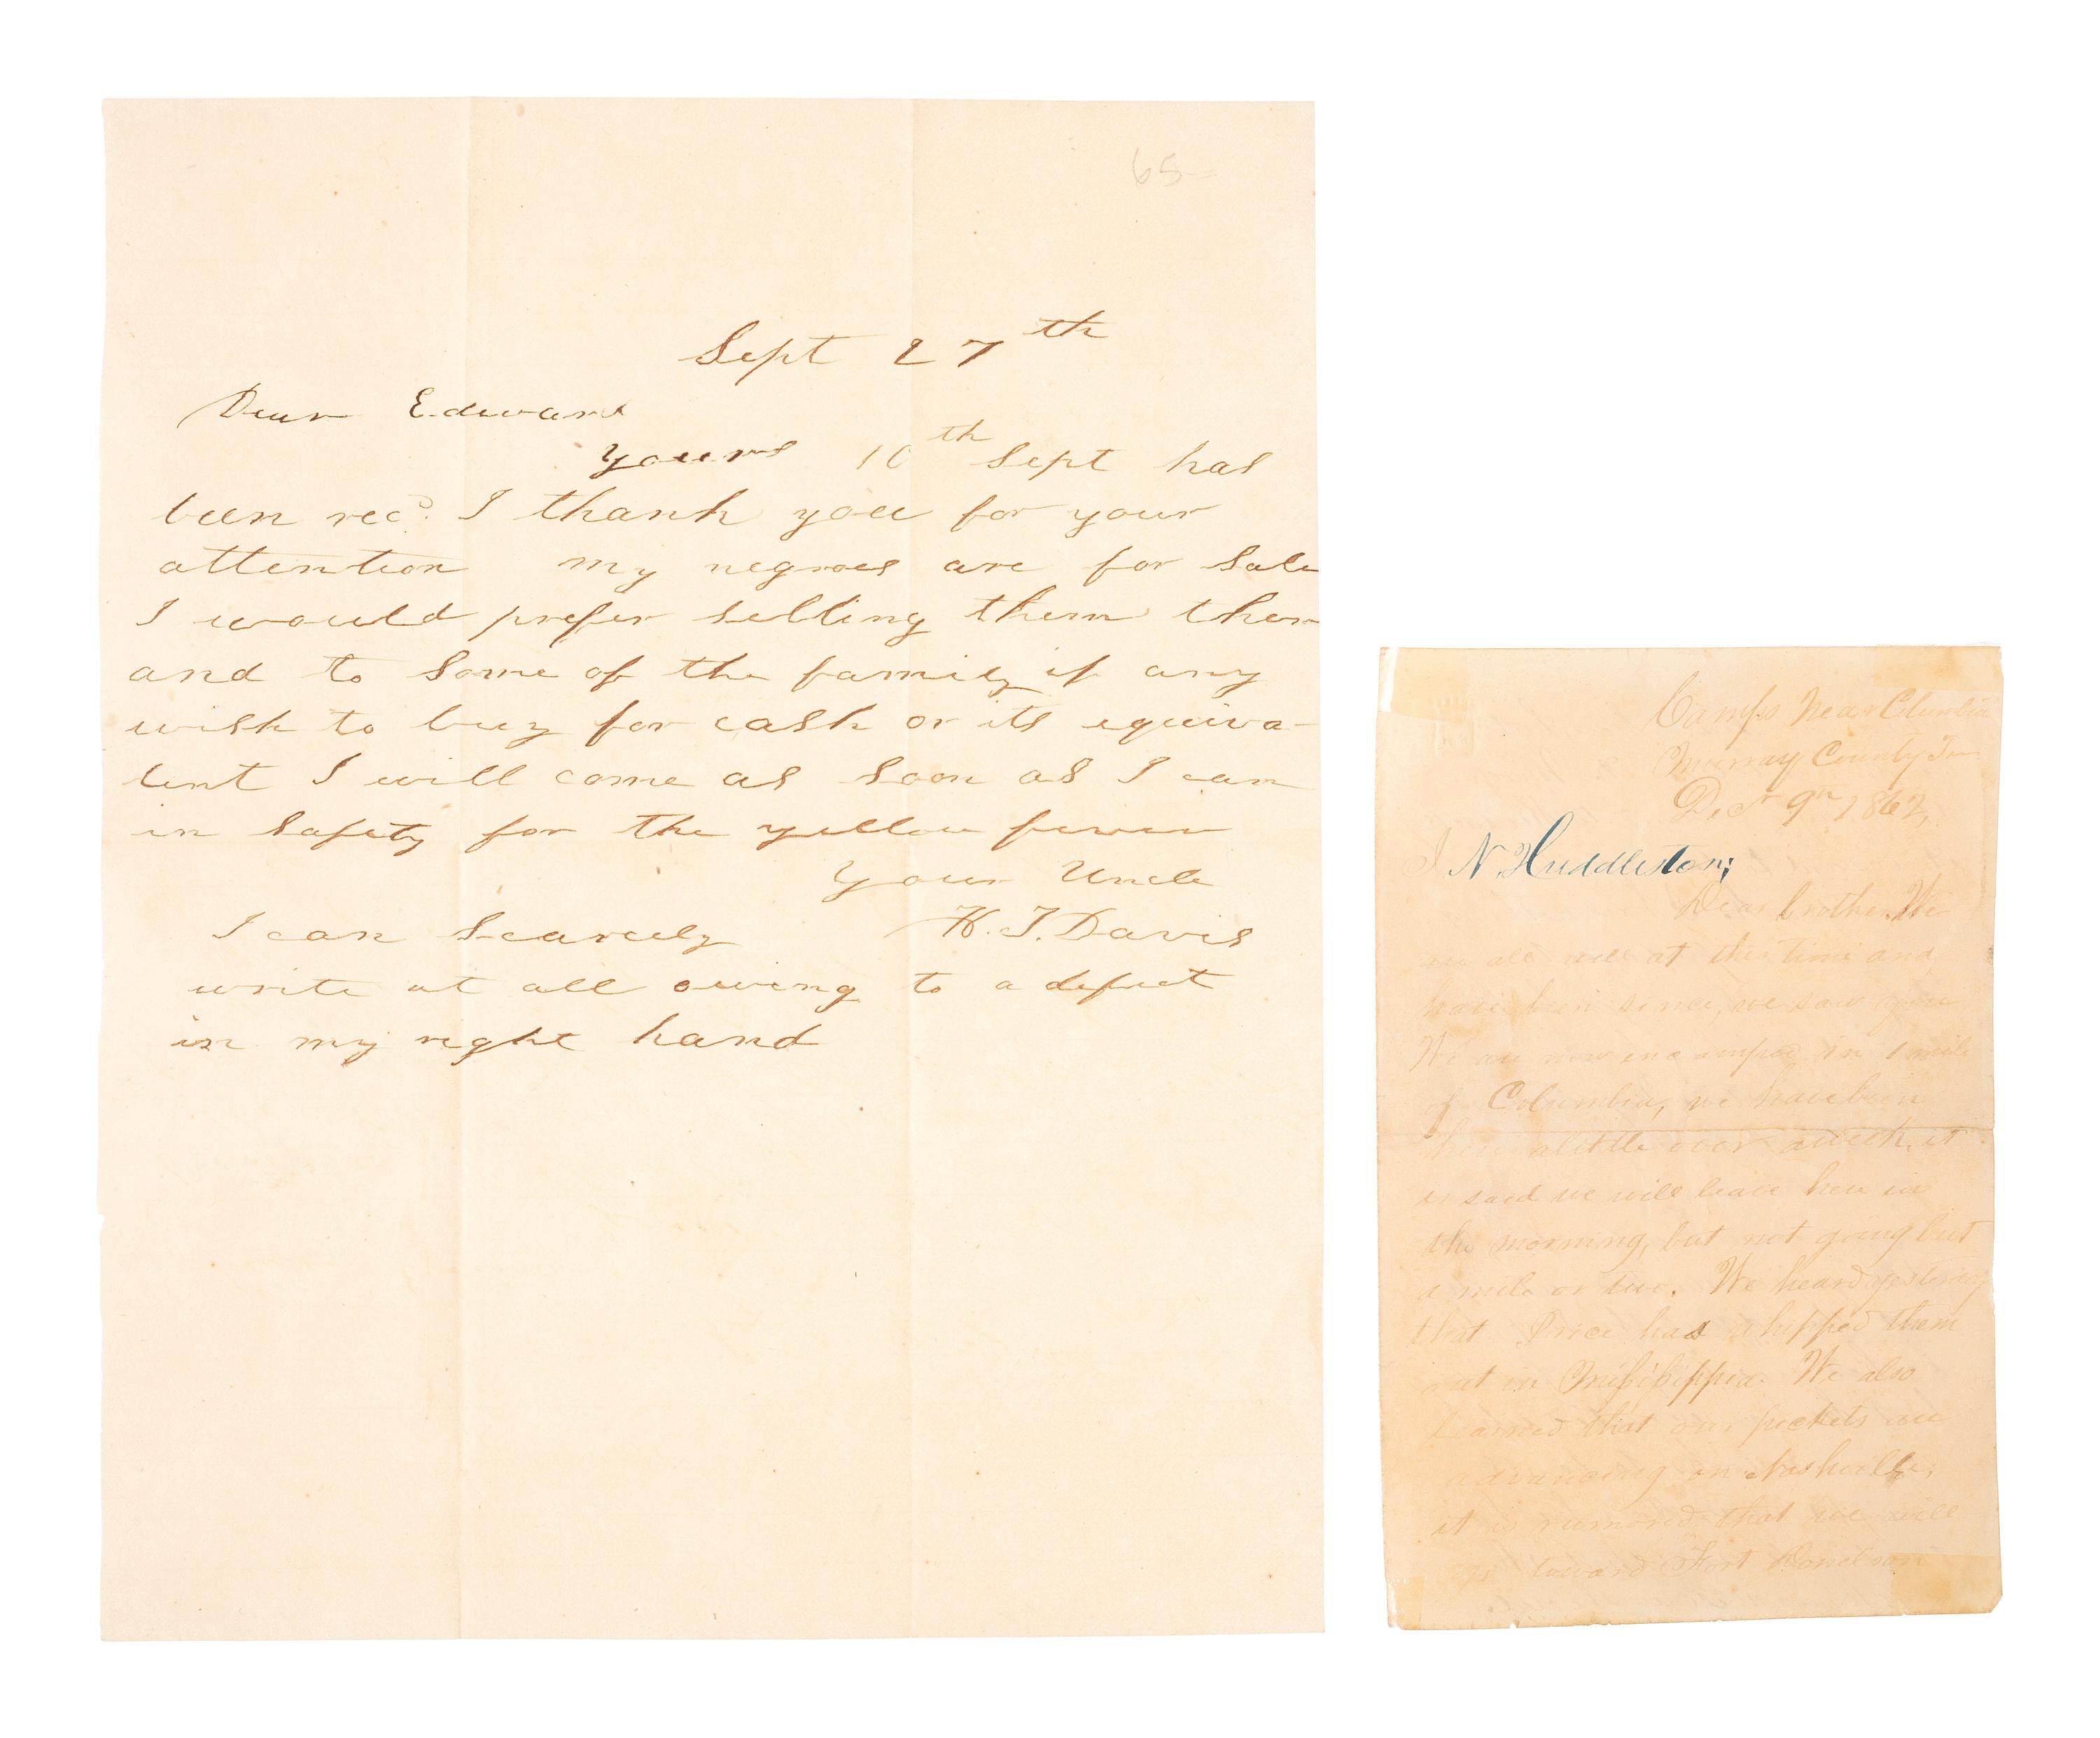 65
Sept 27th
Dear Edward
Yours 10th Sept has
been recd. I thank you for your
attention my negroes are for sale
I would prefer selling them ther
and to some of the family if any
wish to buy for cash or its equiva-
lent I will come as soon as I can
in safety for the yellow fever
Your Uncle
H. T. Davis
I can scarcely
write at all owing to a defect
in my right hand
Camps Near Columbia
Murray County Tn
Decr 9th 1862
I N Huddleston;
Dear brother. We
are all well at this time and
have been since, we saw you
We are now encamped in 1 mile
of Columbia, we have been
here alittle over aweek, it
is said we will leave here in
the morning, but not going but
a mile or two. We heard yesterday
that Price had whipped them
out in Missisippia. We also
learned that our pickets are
advancing on Nashville;
it is rumored that we will
go toward Fort Donelson